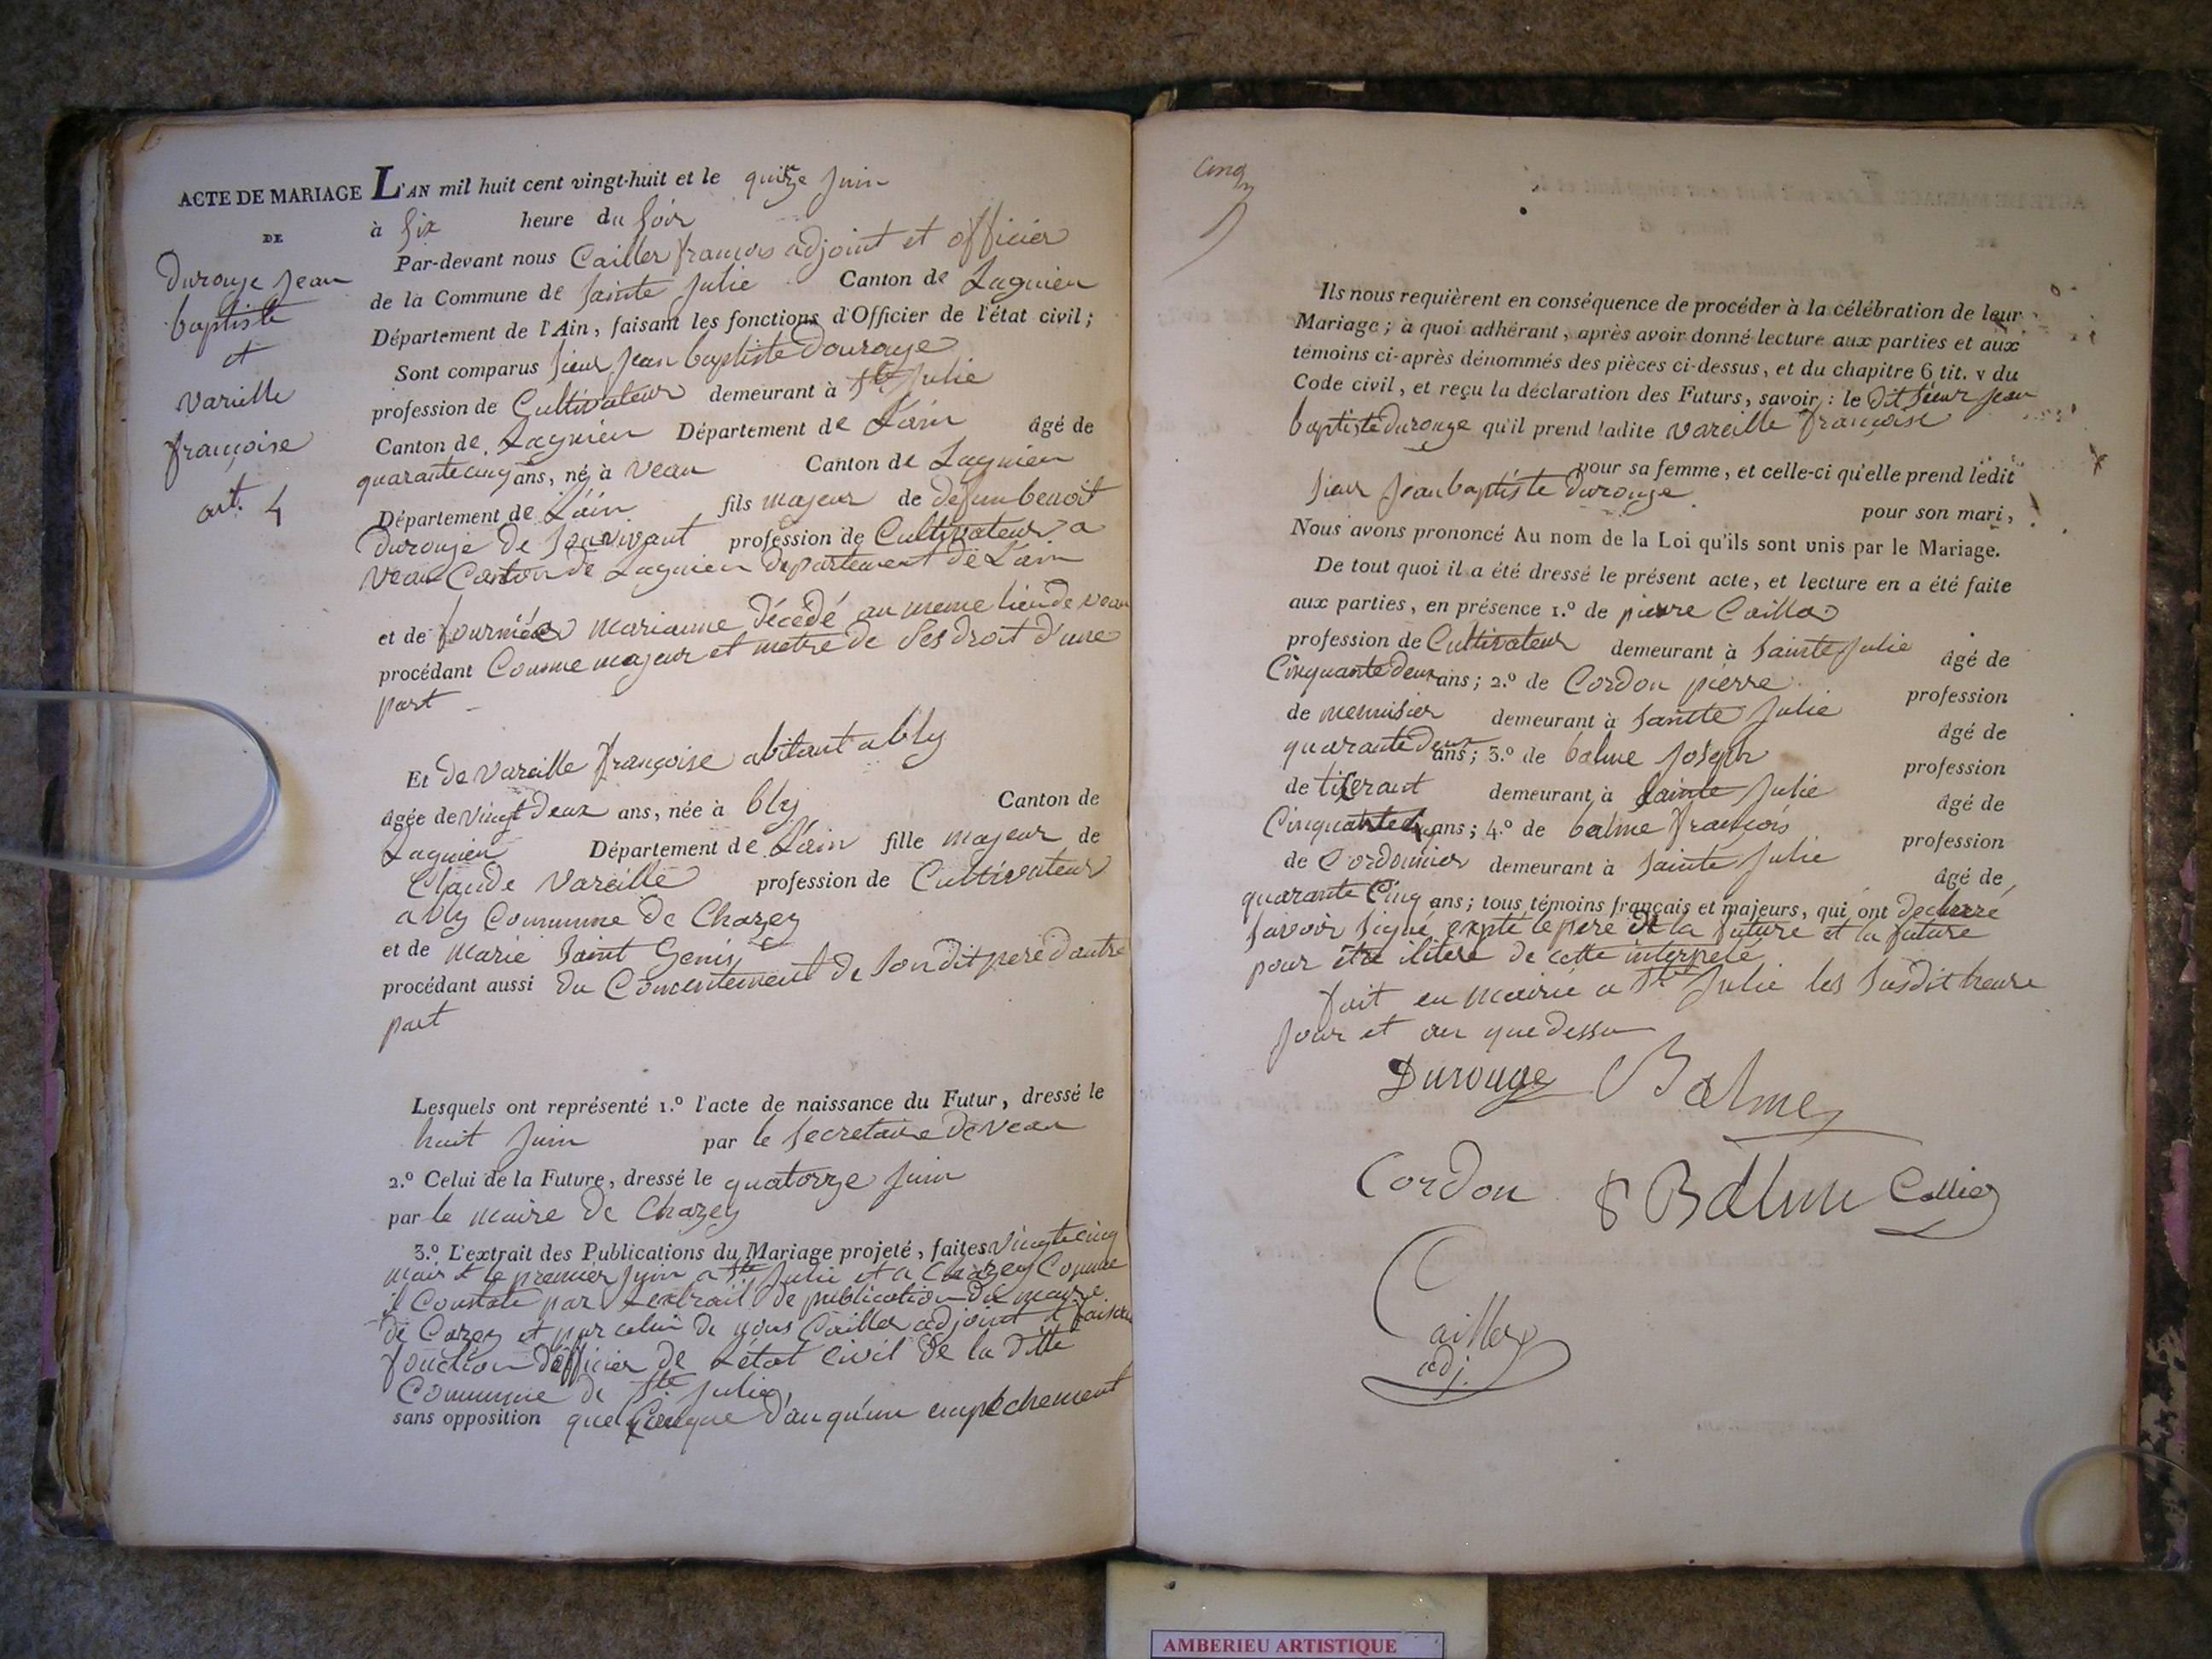 ACTE DE MARIAGE
DE
Durouge Jean
baptiste
et
vareille
françoise
art. 4
L'AN mil huit cent vingt-huit et le quinze juin
à Six heure du Soir
Par-devant nous Cailler françois adjoint et officier
de la Commune de Sainte Julie Canton de Lagnieu
Département de l'Ain, faisant les fonctions d'Officier de l'état civil;
Sont comparus Sieur Jean baptiste Dourouge
profession de Cultivateur demeurant à Ste Julie
Canton de Lagnieu Département de L'ain âgé de
quarante cinq ans, né à veau Canton de Lagnieu
Département de L'ain fils majeur de defun benoit
durouje de Son vivant profession de Cultivateur a
veau Canton de Lagnieu departement de L'ain
et de fournier marianne décédé au meme lieu de veau
procédant Comme majeur et metre de Ses droit d'une
part
Et de Vareille françoise abitant a bly
âgée de vingt deux ans, née à bly Canton de
Lagnieu Département de L'ain fille majeur de
Claude Vareille profession de Cultivateur
a bly Commune de Chazey
et de marie Saint Genis
procédant aussi du Concentement de Son dit pere d'autre
part
Lesquels ont représenté 1.º l'acte de naissance du Futur, dressé le
huit juin par le Secretaire de veau
2.º Celui de la Future, dressé le quatorze juin
par le maire de Chazey
3.º L'extrait des Publications du Mariage projeté, faites vingt cinq
mais et le premier juin a Ste Julie et a Chazey Comme
il Constate par Lextrait de publication du maire
de Cazey et par celui de nous Cailler adjoint et faisan
fonction d'officier de Letat Civil de la ditte
Commune de Ste Julie,
sans opposition quelconque d'auqu'un empechement
Cinq
Ils nous requièrent en conséquence de procéder à la célébration de leur
Mariage; à quoi adhérant, après avoir donné lecture aux parties et aux
témoins ci-après dénommés des pièces ci-dessus, et du chapitre 6 tit. v du
Code civil, et reçu la déclaration des Futurs, savoir: le dit Sieur Jean
baptiste durouge qu'il prend ladite vareille françoise
pour sa femme, et celle-ci qu'elle prend ledit
Sieur Jean baptiste durouge
pour son mari,
Nous avons prononcé Au nom de la Loi qu'ils sont unis par le Mariage.
De tout quoi il a été dressé le présent acte, et lecture en a été faite
aux parties, en présence 1.º de pierre Cailler
profession de Cultivateur demeurant à Sainte Julie âgé de
Cinquante deux ans; 2.º de Cordon pierre profession
de menuisier demeurant à Sainte Julie âgé de
quarante deux ans; 3.º de balme Joseph profession
de tiserant demeurant à Sainte Julie âgé de
Cinquante ans; 4.º de balme françois profession
de Cordonnier demeurant à Sainte Julie âgé de
quarante Cinq ans; tous témoins français et majeurs, qui ont declarré
Savoir Signé expté le pere de la future et la future
pour être ilitere de cette interpelé
fait en mairie a Ste Julie les Susdit heure
jour et an que dessu
Durouge Balme
Cordon Balme Callier
Cailler
adj.
AMBERIEU ARTISTIQUE